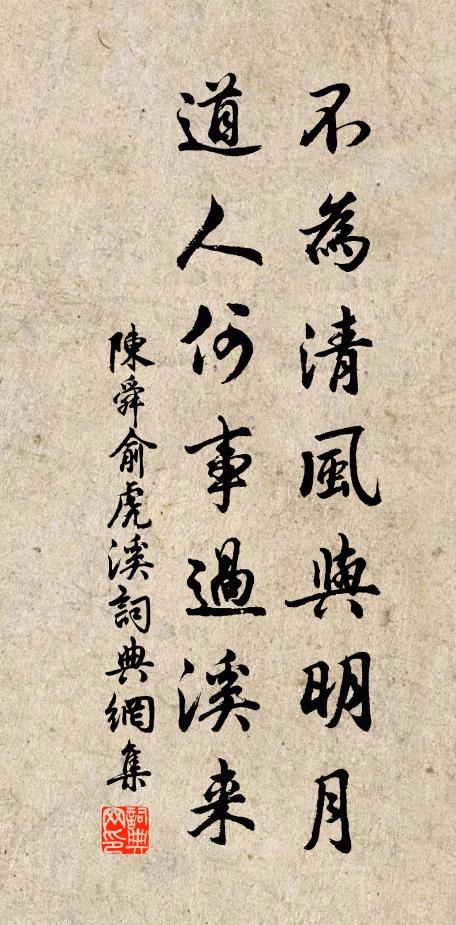 不為清風與明月
道人何事過溪来
陳舜俞虎溪詞典網集
詞典
网印